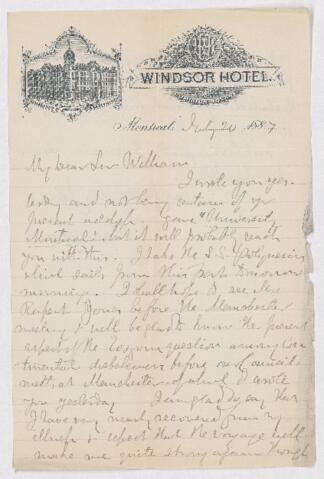 WINDSOR HOTEL.
Montreal, July 20 1887
My Dear Sir William
I wrote you yes-
terday and not being certain of yr
present address gave "University
Montreal": but it will probably reach
you with this. I take the S.S.
which sails from this port tomorrow
morning. I shall hope to see Mr
Rupert Jones before the Manchester
meeting & will be glad to know the present
aspect of the question among con-
tinental before our Council
meets at Manchester of which I wrote
you yesterday I am glad to say that
I have very nearly recovered from my
illness & expect that the voyage will
make me quite strong again though